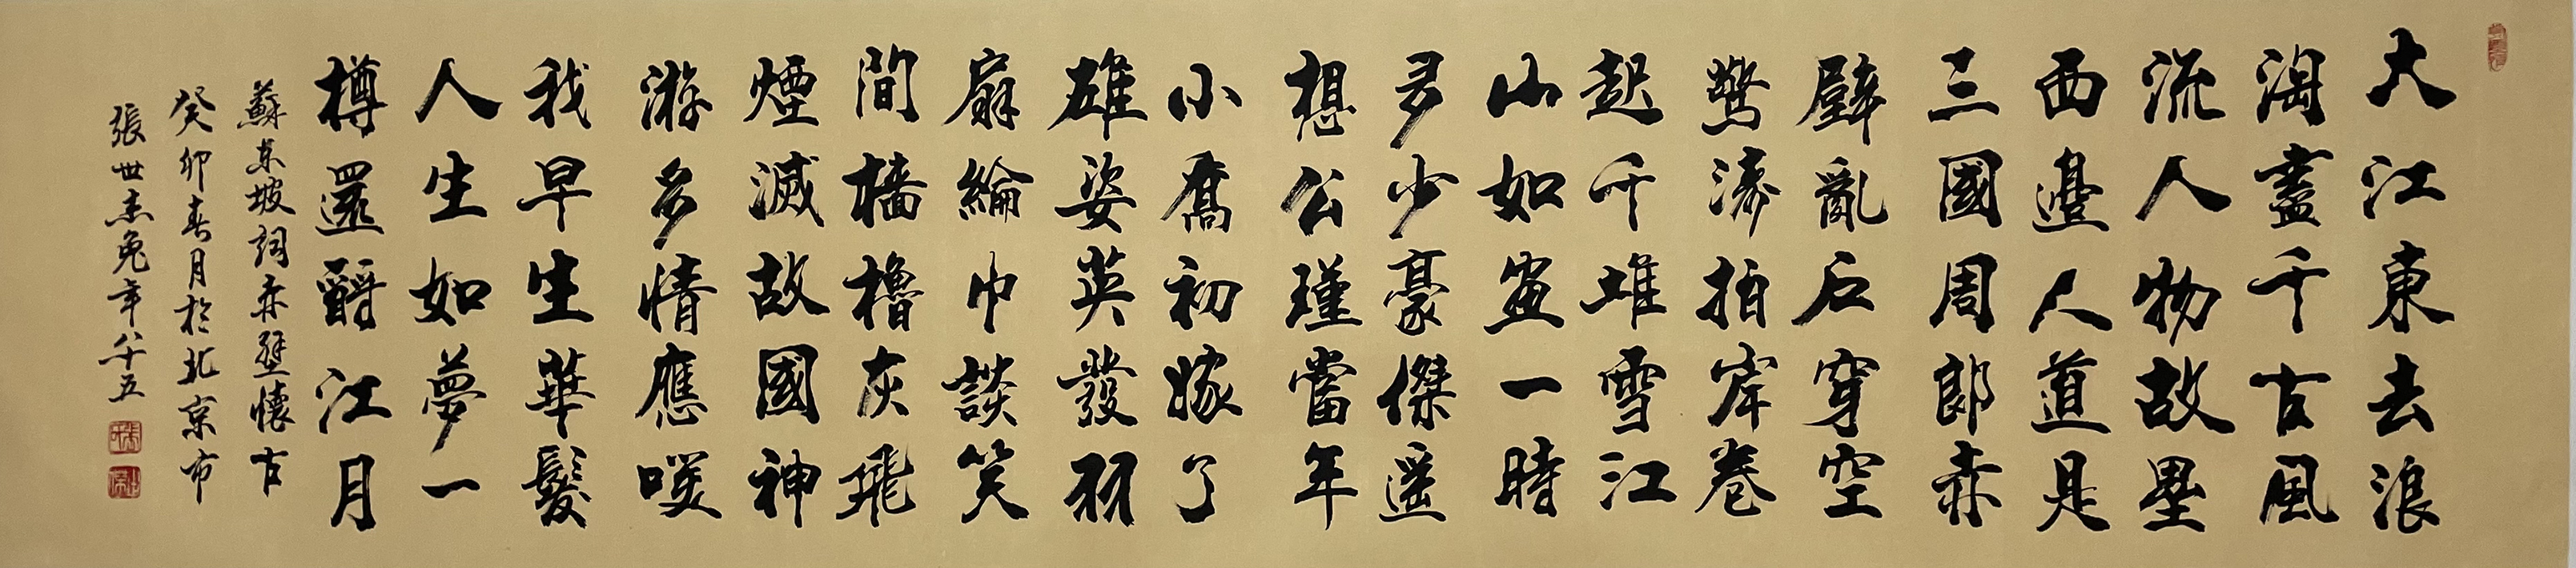 大江東去浪
淘盡千古風
流人物故壘
西邊人道是
三國周郎赤
壁亂石穿空
驚濤拍岸卷
起千堆雪江
山如畫一時
多少豪傑遥
想公瑾當年
小喬初嫁了
雄姿英發羽
扇綸巾談笑
間檣櫓灰飛
煙滅故國神
游多情應笑
我早生華髮
人生如夢一
樽還酹江月
蘇東坡詞赤壁懷古
癸卯春月於北京市
張世杰兔年八十五